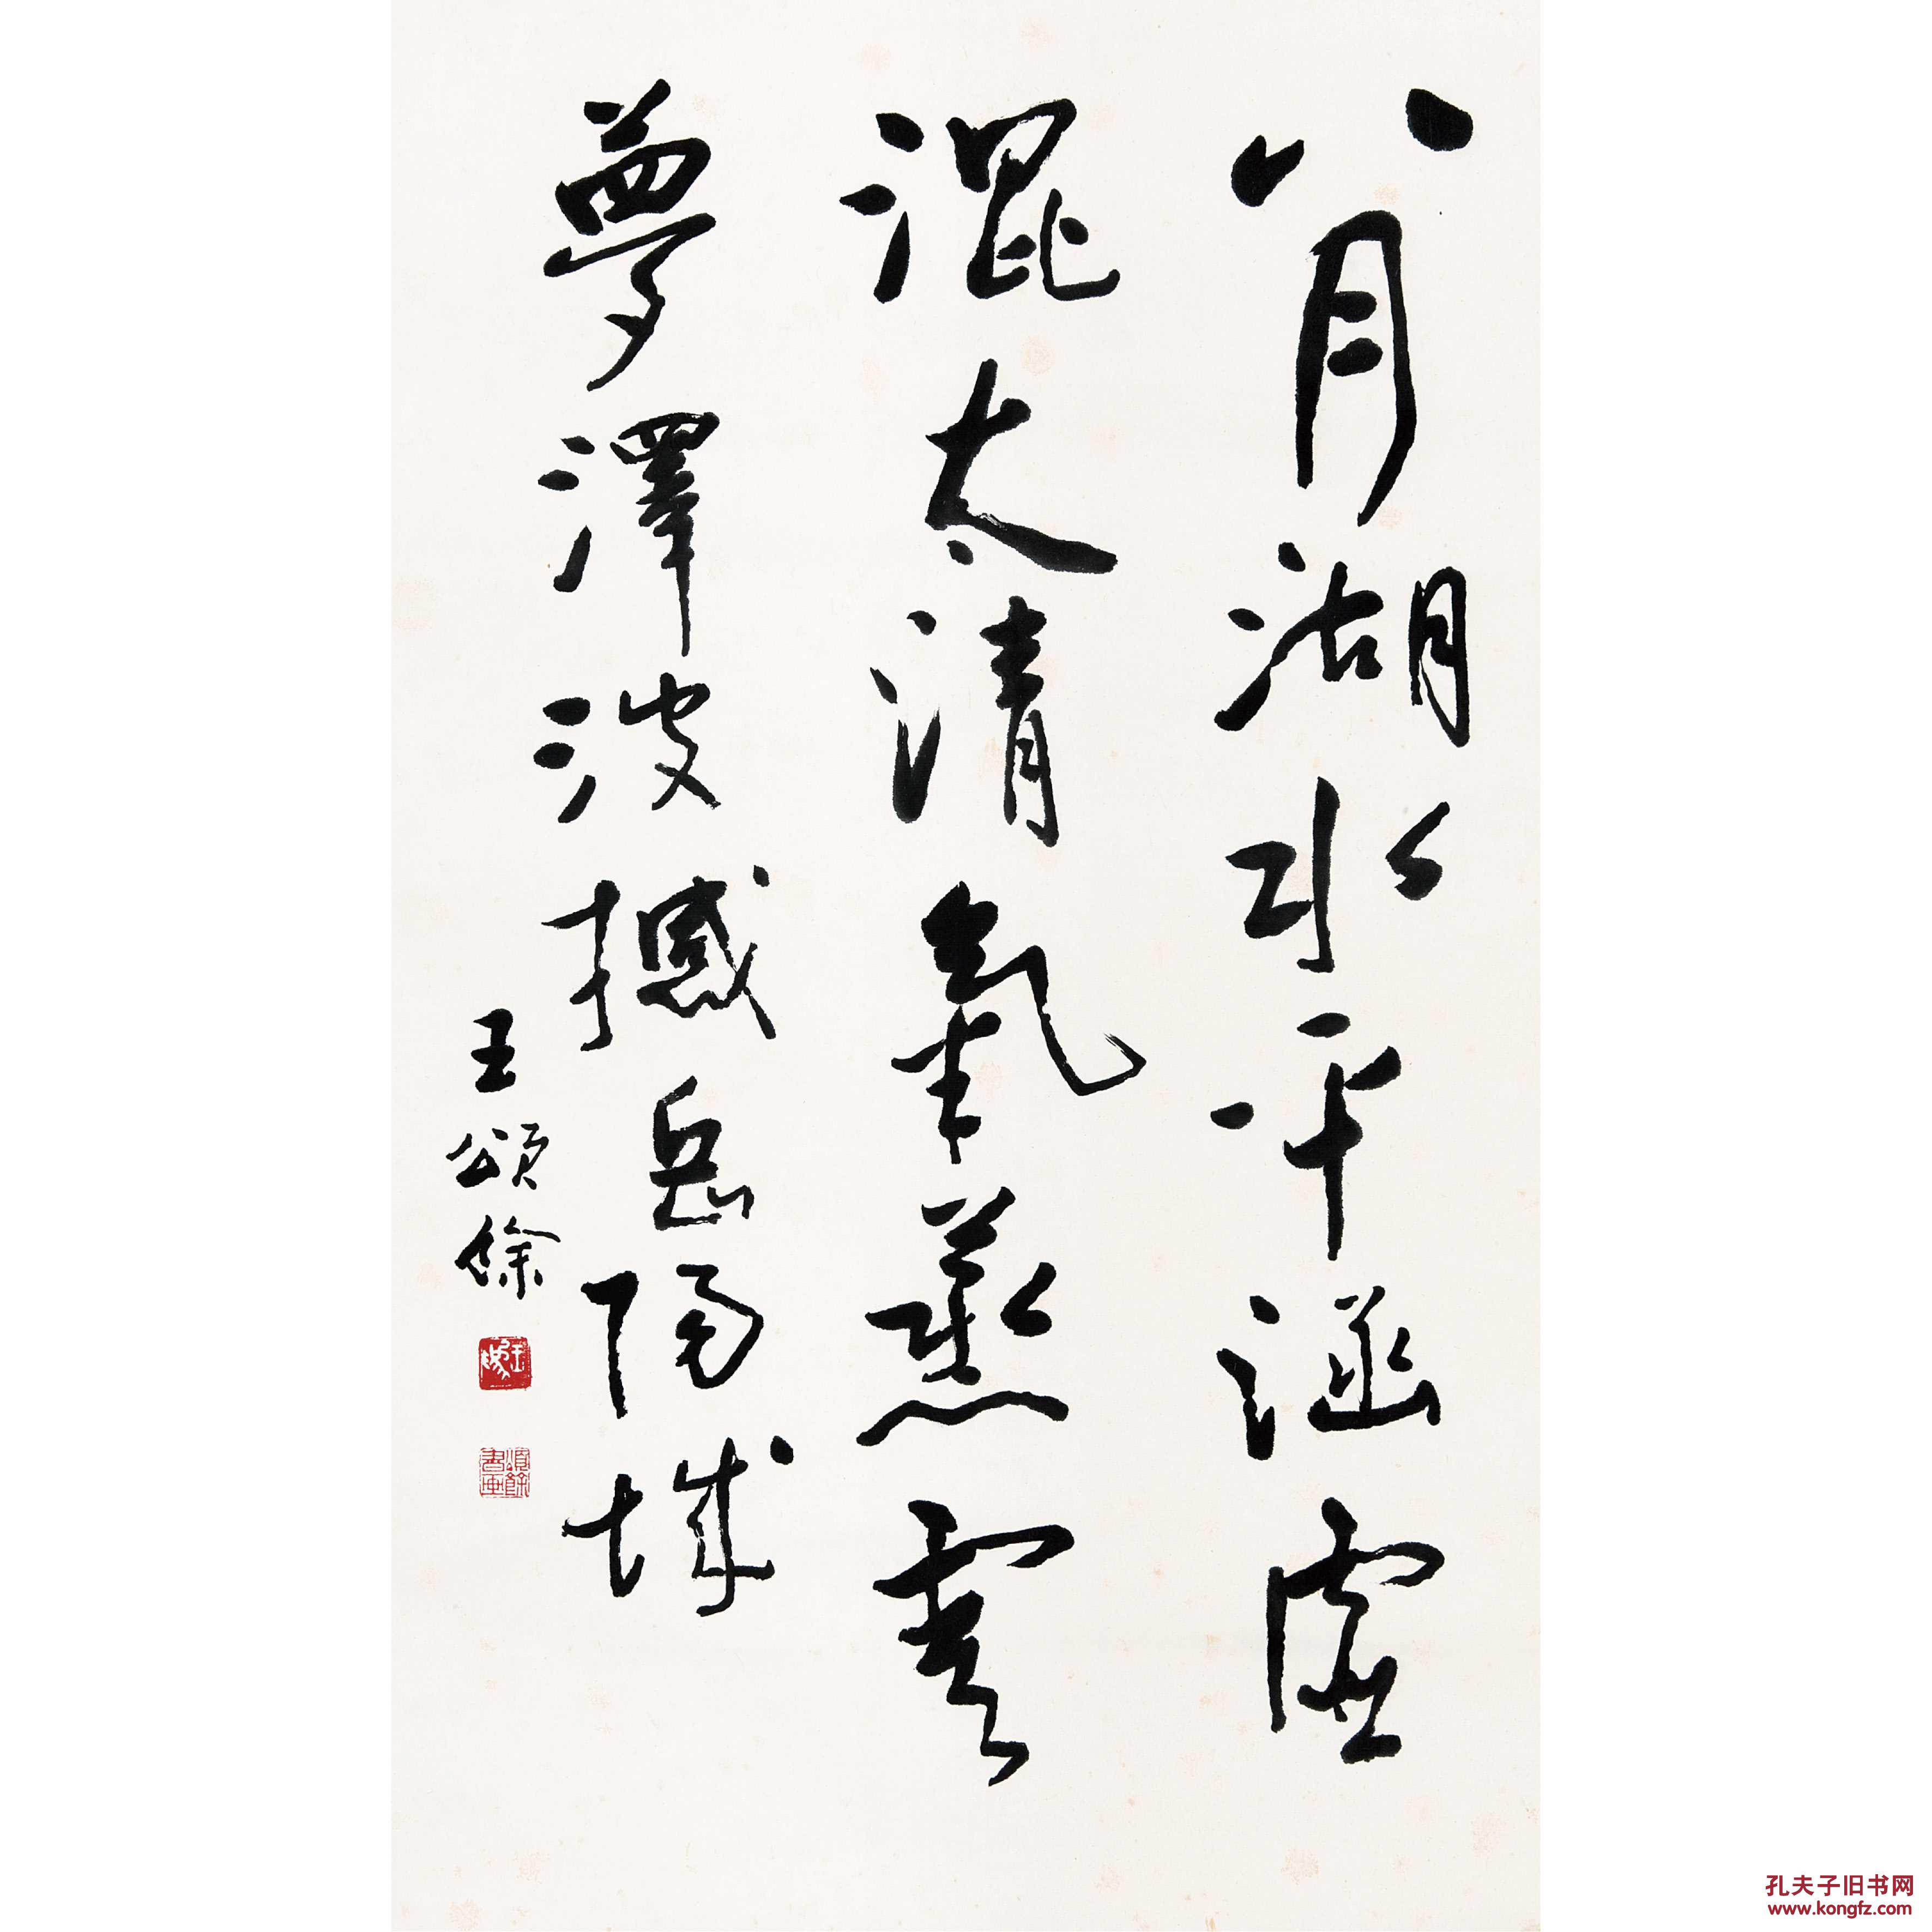 八月湖水平涵虛
混太清氣蒸雲
夢澤波撼岳陽城
王頌餘
頌餘書画
孔夫子旧书网
www.kongfz.com